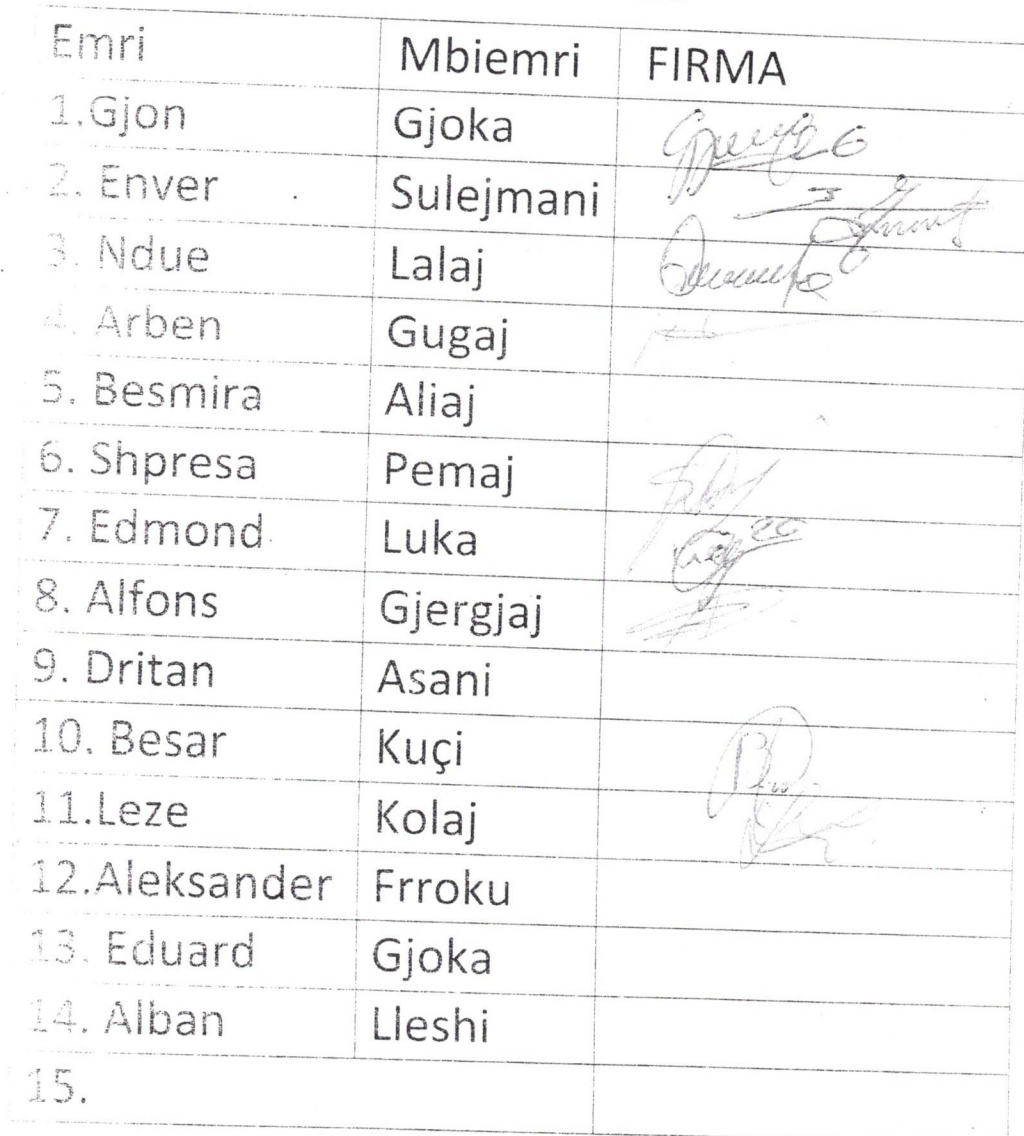 Emri Mbiemri FIRMA
1.Gjon Gjoka
2. Enver Sulejmani
3. Ndue Lalaj
4. Arben Gugaj
5. Besmira Aliaj
6. Shpresa Pemaj
7. Edmond Luka
8. Alfons Gjergjaj
9. Dritan Asani
10. Besar Kuçi
11.Leze Kolaj
12.Aleksander Frroku
13. Eduard Gjoka
14. Alban Lleshi
15.